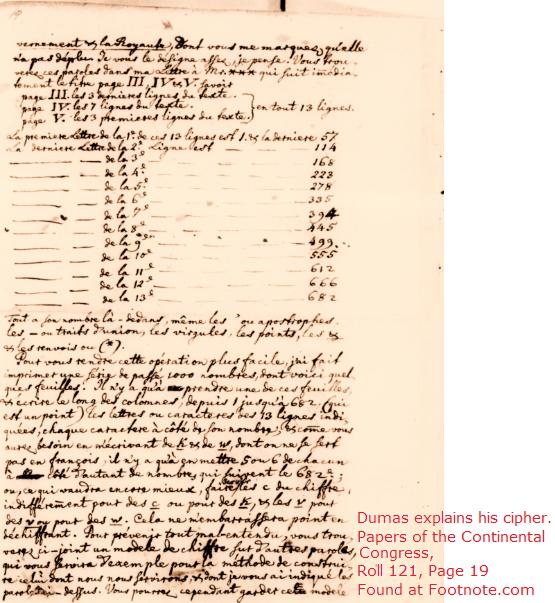 vernement & la Royauté, dont vous me marquez qu'elle
n'a pas déplu. Je vous le désigne assez, je pense. Vous trou-
verez ces paroles dans ma Lettre à Mr. xxx qui suit imédia-
tement le titre page III. IV. & V. savoir
page III. les 3 dernieres lignes du texte.
page IV. les 7 lignes du texte.
page V. les 3 premieres lignes du texte.
en tout 13 lignes.
La premiere Lettre de la 1e. de ces 13 lignes est 1. & la derniere 57
La derniere Lettre de la 2e. Ligne est — — 114
— — de la 3e — — 168
— — de la 4e — — 223
— — de la 5e — — 278
— — de la 6e — — 335
— — de la 7e — — 394
— — de la 8e — — 445
— — de la 9e — — 499
— — de la 10e — — 555
— — de la 11e — — 612
— — de la 12e — — 666
— — de la 13e — — 682
Tout a son nombre là-dedans, même les ' ou apostrophes,
les - ou traits d'union, les virgules, les points, les &
& les renvois ou (*).
Pour vous rendre cette opération plus facile, j'ai fait
imprimer une série de passé 1000 nombres, dont voici quel-
ques feuilles. Il n'y a qu'à prendre une de ces feuilles,
& écrire le long des colomnes, depuis 1 jusqu'à 682 (qui
est un point) les lettres ou caracteres des 13 lignes indi-
quées, chaque caractere à côté de son nombre; & come vous
aurez besoin en m'écrivant de k & de w, dont on ne se sert
pas en françois, il n'y a qu'à en mettre 5 ou 6 de chacun
à côté d'autant de nombres qui suivent le 682e;
ou, ce qui vaudra encore mieux, faire servir les c du chiffre,
indifféremment pour des c ou pour des k, & les v pour
des v ou pour des w. Cela ne m'embarrassera point en
déchiffrant. Pour prevenir tout malentendu, vous trou-
verez ci-joint un modele de chiffre sur d'autres paroles,
qui vous servira d'exemple pour la méthode de construi-
re celui dont nous nous servirons, & dont je vous ai indiqué les
paroles ci-dessus. Vous pourrez cependant garder cette modele
Dumas explains his cipher.
Papers of the Continental
Congress,
Roll 121, Page 19
Found at Footnote.com